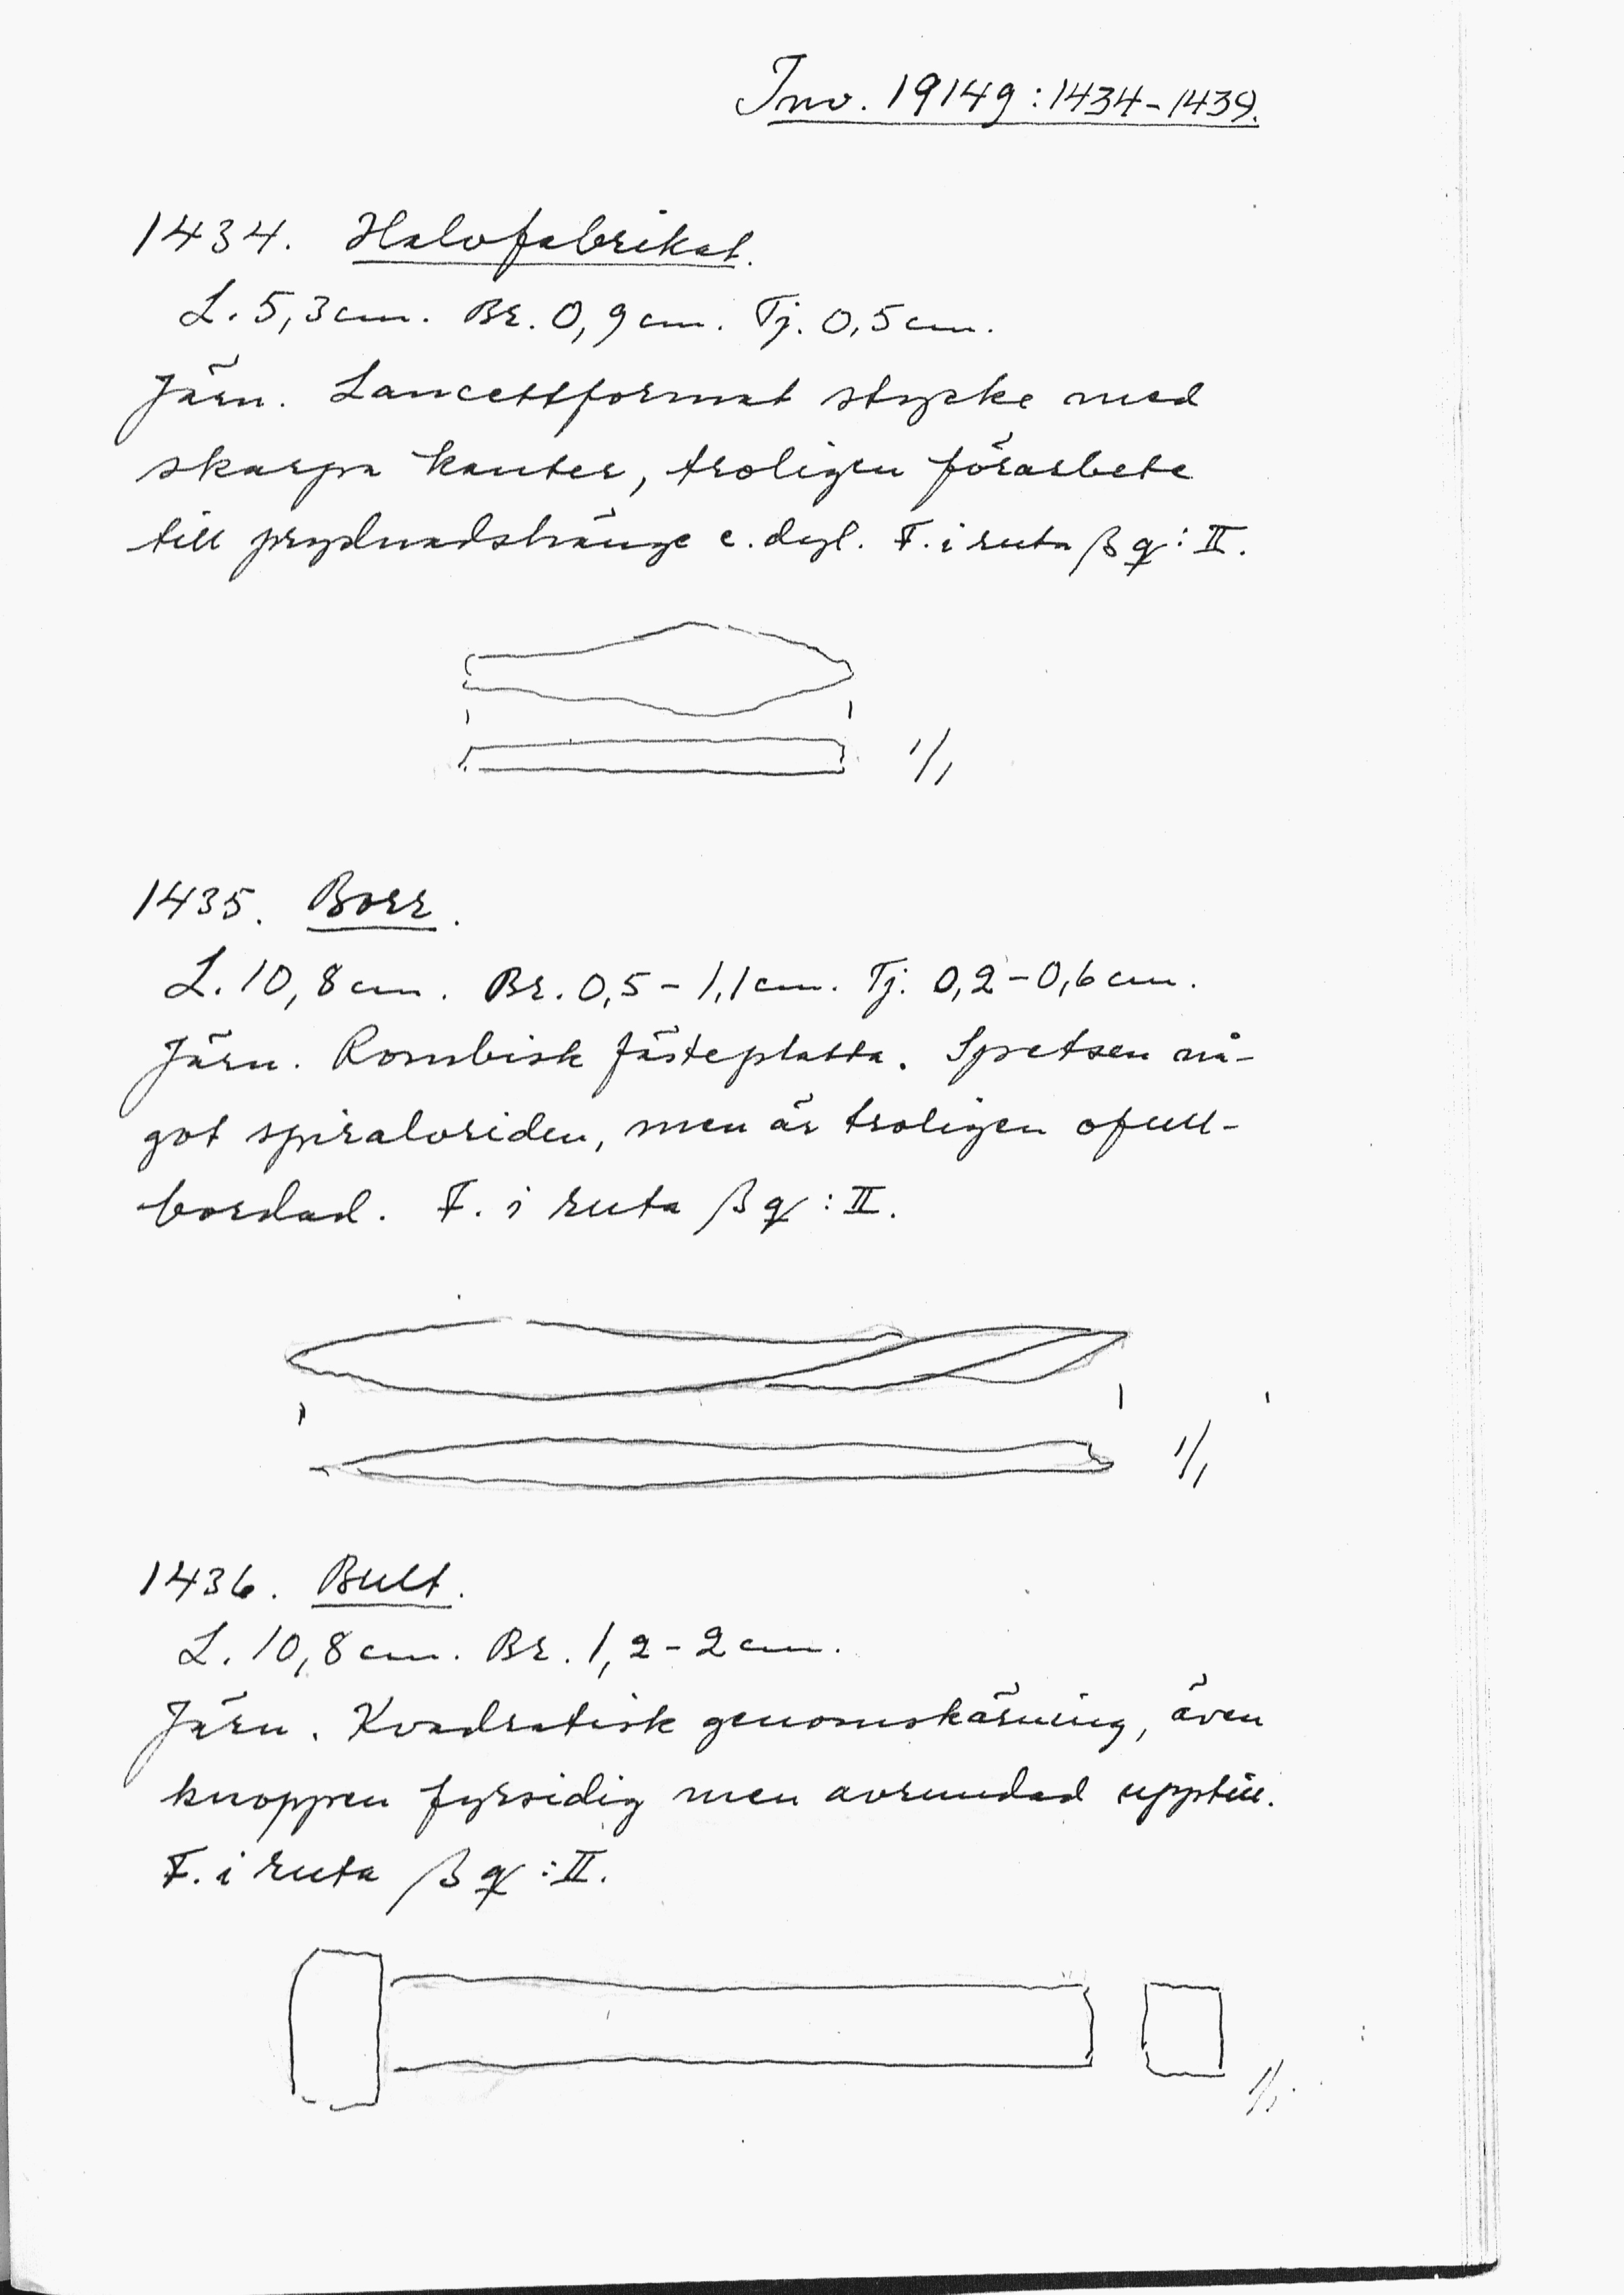 Inv. 19149:1434-1439.
1434. Halvfabrikat.
L. 5,3 cm. Br. 0,9 cm. Tj. 0,5 cm.
Järn. Lancettformat stycke med
skarpa kanter, troligen förarbete
till prydnadshänge e. dyl. F. i ruta β q : II.
1/1
1435. Borr.
L. 10,8 cm. Br. 0,5 - 1,1 cm. Tj. 0,2 - 0,6 cm.
Järn. Rombisk fästeplatta. Spetsen nå-
got spiralvriden, men är troligen ofull-
bordad. F. i ruta β q : II.
1/1
1436. Bult.
L. 10,8 cm. Br. 1,2 - 2 cm.
Järn. Kvadratisk genomskärning, även
knoppen fyrsidig men avrundad upptill.
F. i ruta β q : II.
1/1